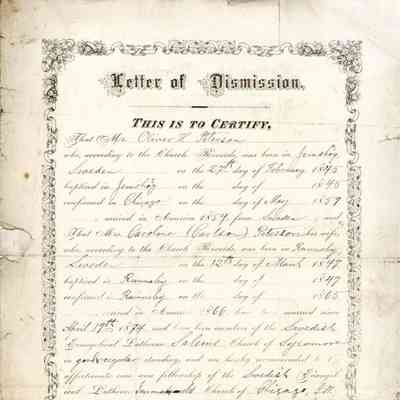 Letter of Dismission.
THIS IS TO CERTIFY,
That Mr. Oliver H. Peterson
who, according to the Church Records, was born in Jemshög
Sweden on the 27th day of February 1845
baptized in Jemshög on the day of 1845
confirmed in Chicago on the day of May 1859
arrived in America 1854 from Sweden and
That Mrs. Caroline (Carlson) Peterson his wife
who, according to the Church Records, was born in Ramneby
Sweden on the 12th day of March 1847
baptized in on the day of 1847
confirmed in on the day of 1865
and in 1866
April 19th 1874, and have been members of the Swedish
Evangelical Lutheran Salem Church of Sycamore
in good regular standing, and are hereby recommended to
affectionate care and fellowship of the Swedish Evangel
ical Lutheran Church of Chicago, Ill.